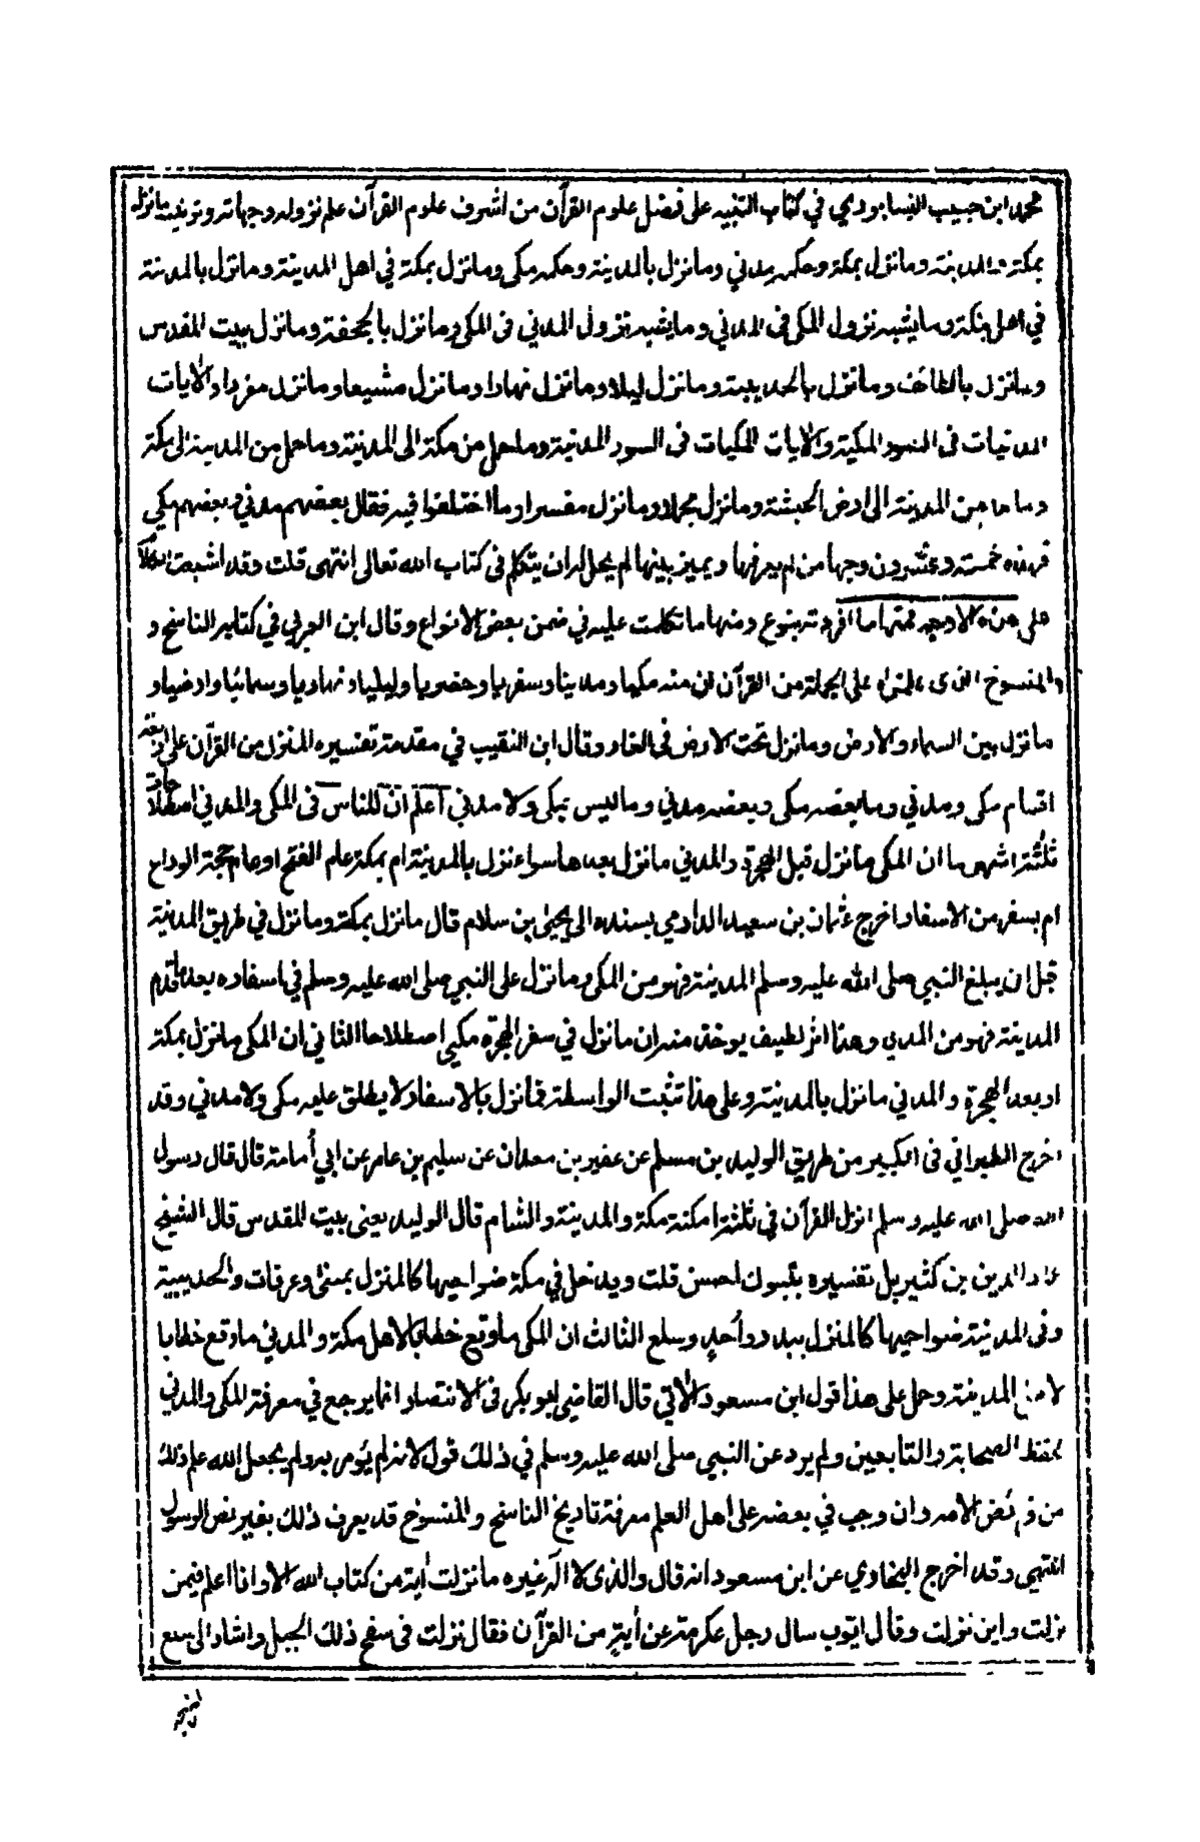 محمد ابن حبيب النيسابوري في كتاب التنبيه على فضل علوم القرآن من اشرف علوم القرآن علم نزوله وجهاته وترتيب مانزل
بمكة والمدينة ومانزل بمكة وحكمه مدني ومانزل بالمدينة وحكمه مكى ومانزل بمكة في اهل المدينة ومانزل بالمدينة
في اهل مكة وما يشبه نزول المكى فى المدني وما يشبه نزول المدني فى المكى ومانزل بالجحفة ومانزل ببيت المقدس
ومانزل بالطائف ومانزل بالحديبية ومانزل ليلا ومانزل نهارا ومانزل مشيعا ومانزل مفردا والآيات
المدنيات فى السور المكية والآيات المكيات فى السور المدنية وماحمل من مكة الى المدينة وماحمل من المدينة الى مكة
وماحمل من المدينة الى ارض الحبشة ومانزل مجملا ومانزل مفسرا وما اختلفوا فيه فقال بعضهم مدني وبعضهم مكي
فهذه خمسة وعشرون وجها من لم يعرفها ويميز بينها لم يحل له ان يتكلم فى كتاب الله تعالى انتهى قلت وقد اشبعت الكلام
على هذه الاوجه فمنها ما افردته بنوع ومنها ما تكلمت عليه في ضمن بعض الانواع وقال ابن العربي في كتابه الناسخ و
والمنسوخ الذى علمناه على الجملة من القرآن ان منه مكيا ومدنيا وسفريا وحضريا وليليا ونهاريا وسمائيا وارضيا و
مانزل بين السماء والارض ومانزل تحت الارض فى الغار وقال ابن النقيب في مقدمة تفسيره المنزل من القرآن على اربعة
اقسام مكى ومدني وما بعضه مكى وبعضه مدني وما ليس بمكى ولا مدني اعلم ان للناس فى المكى والمدني اصطلاحات
ثلثة اشهرها ان المكى مانزل قبل الهجرة والمدني مانزل بعدها سواء نزل بالمدينة ام بمكة عام الفتح او عام حجة الوداع
ام بسفر من الاسفار اخرج عثمان بن سعيد الدارمي بسنده الى يحيى بن سلام قال مانزل بمكة ومانزل في طريق المدينة
قبل ان يبلغ النبي صلى الله عليه وسلم المدينة فهو من المكى ومانزل على النبي صلى الله عليه وسلم في اسفاره بعد ماقدم
المدينة فهو من المدني وهذا اثر لطيف يوخذ منه ان مانزل في سفر الهجرة مكي اصطلاحا الثاني ان المكى مانزل بمكة
او بعد الهجرة والمدني مانزل بالمدينة وعلى هذا تثبت الواسطة فمانزل بالاسفار لا يطلق عليه مكى ولا مدني وقد
اخرج الطبراني فى الكبير من طريق الوليد بن مسلم عن عفير بن معدان عن سليم بن عامر عن ابي أمامة قال قال رسول
الله صلى الله عليه وسلم انزل القرآن في ثلثة امكنة مكة والمدينة والشام قال الوليد يعنى بيت المقدس قال الشيخ
عماد الدين بن كثير بل تفسيره بتبوك احسن قلت ويدخل في مكة ضواحيها كالمنزل بمنى وعرفات والحديبية
وفى المدينة ضواحيها كالمنزل ببدر وأحد وسلع الثالث ان المكى ماوقع خطابا لاهل مكة والمدني ماوقع خطابا
لاهل المدينة وحمل على هذا قول ابن مسعود الآتي قال القاضي ابو بكر فى الانتصار انما يرجع في معرفة المكى والمدني
لحفظ الصحابة والتابعين ولم يرد عن النبي صلى الله عليه وسلم في ذلك قول لانه لم يؤمر به ولم يجعل الله علم ذلك
من فرائض الامة وان وجب في بعضه على اهل العلم معرفة تاريخ الناسخ والمنسوخ قد يعرف ذلك بغير نص الرسول
انتهى وقد اخرج البخاري عن ابن مسعود انه قال والذى لا اله غيره مانزلت أية من كتاب الله الا وانا اعلم فيمن
نزلت واين نزلت وقال ايوب سال رجل عكرمة عن أية من القرآن فقال نزلت فى سفح ذلك الجبل واشار الى سلع